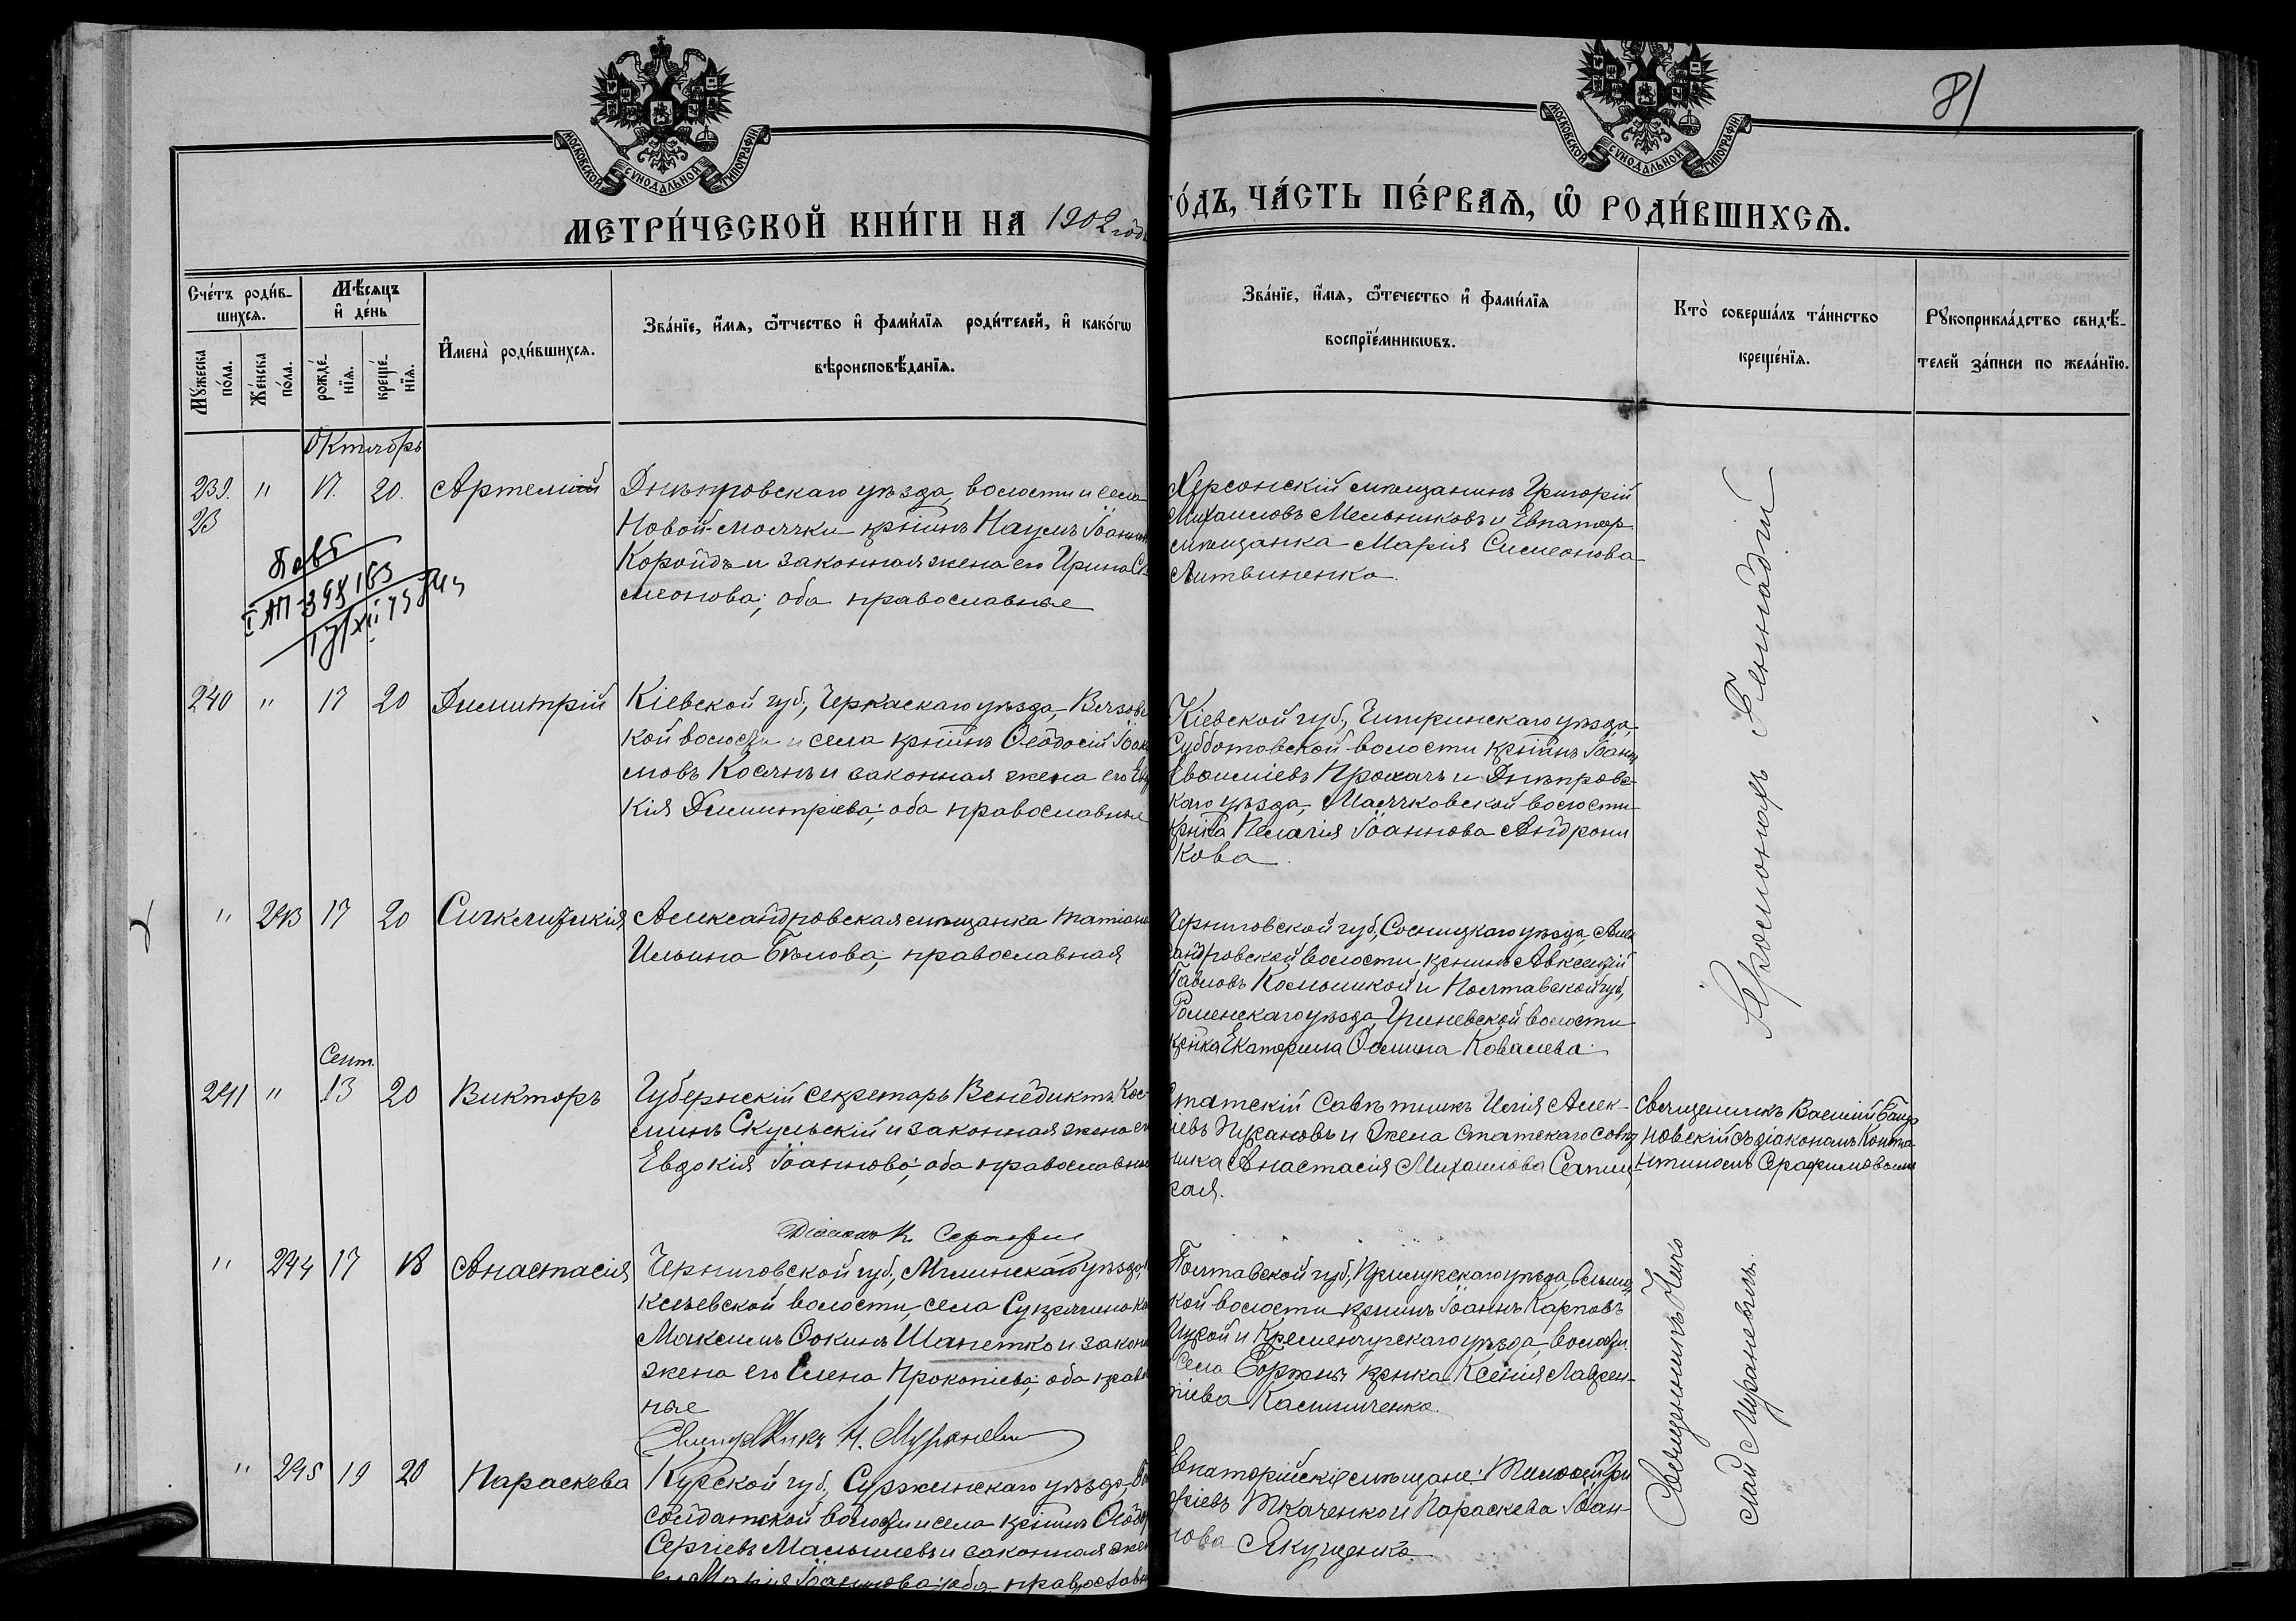 81
МОСКОВСКОЙ СУНОДАЛЬНОЙ ТИПОГРАФІИ
МОСКОВСКОЙ СУНОДАЛЬНОЙ ТИПОГРАФІИ
МЕТРИ́ЧЕСКОЙ КНИ́ГИ НА 1902 годъ
ГО́ДЪ, ЧА́СТЬ ПЕ́РВАѦ, Ѡ҆ РОДИ́ВШИХСѦ.
Сче́тъ роди́в-
шихсѧ.
Мꙋ́жеска
по́ла.
Же́нска
по́ла.
Мѣ́сѧцъ
и҆ де́нь
рожде́-
нїѧ.
креще́-
нїѧ.
И҆мена̀ роди́вшихсѧ.
Зва́нїе, и҆́мѧ, ѻ҆́тчество и҆ фами́лїѧ роди́телей, и҆ како́гѡ
вѣроисповѣ́данїѧ.
Зва́нїе, и҆́мѧ, ѻ҆́течество и҆ фами́лїѧ
воспрїе́мникѡвъ.
Кто̀ соверша́лъ та́инство
креще́нїѧ.
Рꙋкоприкла́дство свидѣ́-
телей за́писи по жела́нїю.
Октябрь
239. " 17. 20. Артемій
23
Днѣпровскаго уѣзда, волости и села
Новой-Маячки крнинъ Наумъ Іоаннов
Коройдъ и законная жена его Ирина Си-
меонова; оба православные
Херсонскій мѣщанинъ Григорій
Михаиловъ Мельниковъ и Евпатор.
мѣщанка Марія Симеонова
Литвиненко.
Іеромонахъ Геннадій
240 " 17 20 Димитрій
Кіевской губ., Черкаскаго уѣзда, Вязовс
кой волости и села крнинъ Ѳеодосій Іоаки
мовъ Косянъ и законная жена его Евдо
кія Димитріева; оба православные
Кіевской губ., Чигринскаго уѣзда,
Субботовской волости крнинъ Іоаннъ
Днѣпровс-
каго уѣзда, Маячковской волости
крнка Пелагія Іоаннова Андрони
кова
" 243 17 20 Синклитикія
Александровская мѣщанка Татіана
Ильина Бѣлова; православная
Черниговской губ., Сосницкаго уѣзда, Алек
сандровской волости крнинъ Авксентій
Павловъ и Полтавской губ,
Роменскаго уѣзда, Гриневской волости
крнка Екатерина Ѳомина Ковалева.
Сент.
241 " 13 20 Викторъ
Губернскій секретарь Венедиктъ Кос-
минъ Скульскій и законная жена его
Евдокія Іоаннова; оба православные
Статскій Совѣтникъ Илія Алек-
ѣевъ Пузановъ и жена статскаго совѣт
ника Анастасія Михаилова
кая.
Священникъ Василій
новскій съ діакономъ Конста-
нтиномъ
Діаконъ К. Серафим
" 244 17 18 Анастасія
Черниговской губ., Мглинскаго уѣзда,
волости, села
Максимъ Ѳокинъ Шапетко и законн
жена его Елена Прокопіева; оба правосл
ные
Священникъ Н. Мураневич
Полтавской губ., Прилукскаго уѣзда,
кой волости крнинъ Іоаннъ Карповъ
и Кременчугскаго уѣзда, волости
села крнка Ксенія Лаврен-
тіева Калиниченко.
Священникъ Нико
лай Мураневичъ.
" 245 19 20 Параскева
Курской губ., Суржинскаго уѣзда,
солдатской волости и села крнинъ Ѳеодор
Сергіевъ Малышевъ и законная жена
его Марія Іоаннова; оба православн
Евпаторійскіе мѣщане: Тимоѳей Гри
горіевъ Ткаченко и Параскева Іоан-
нова Якущенко.